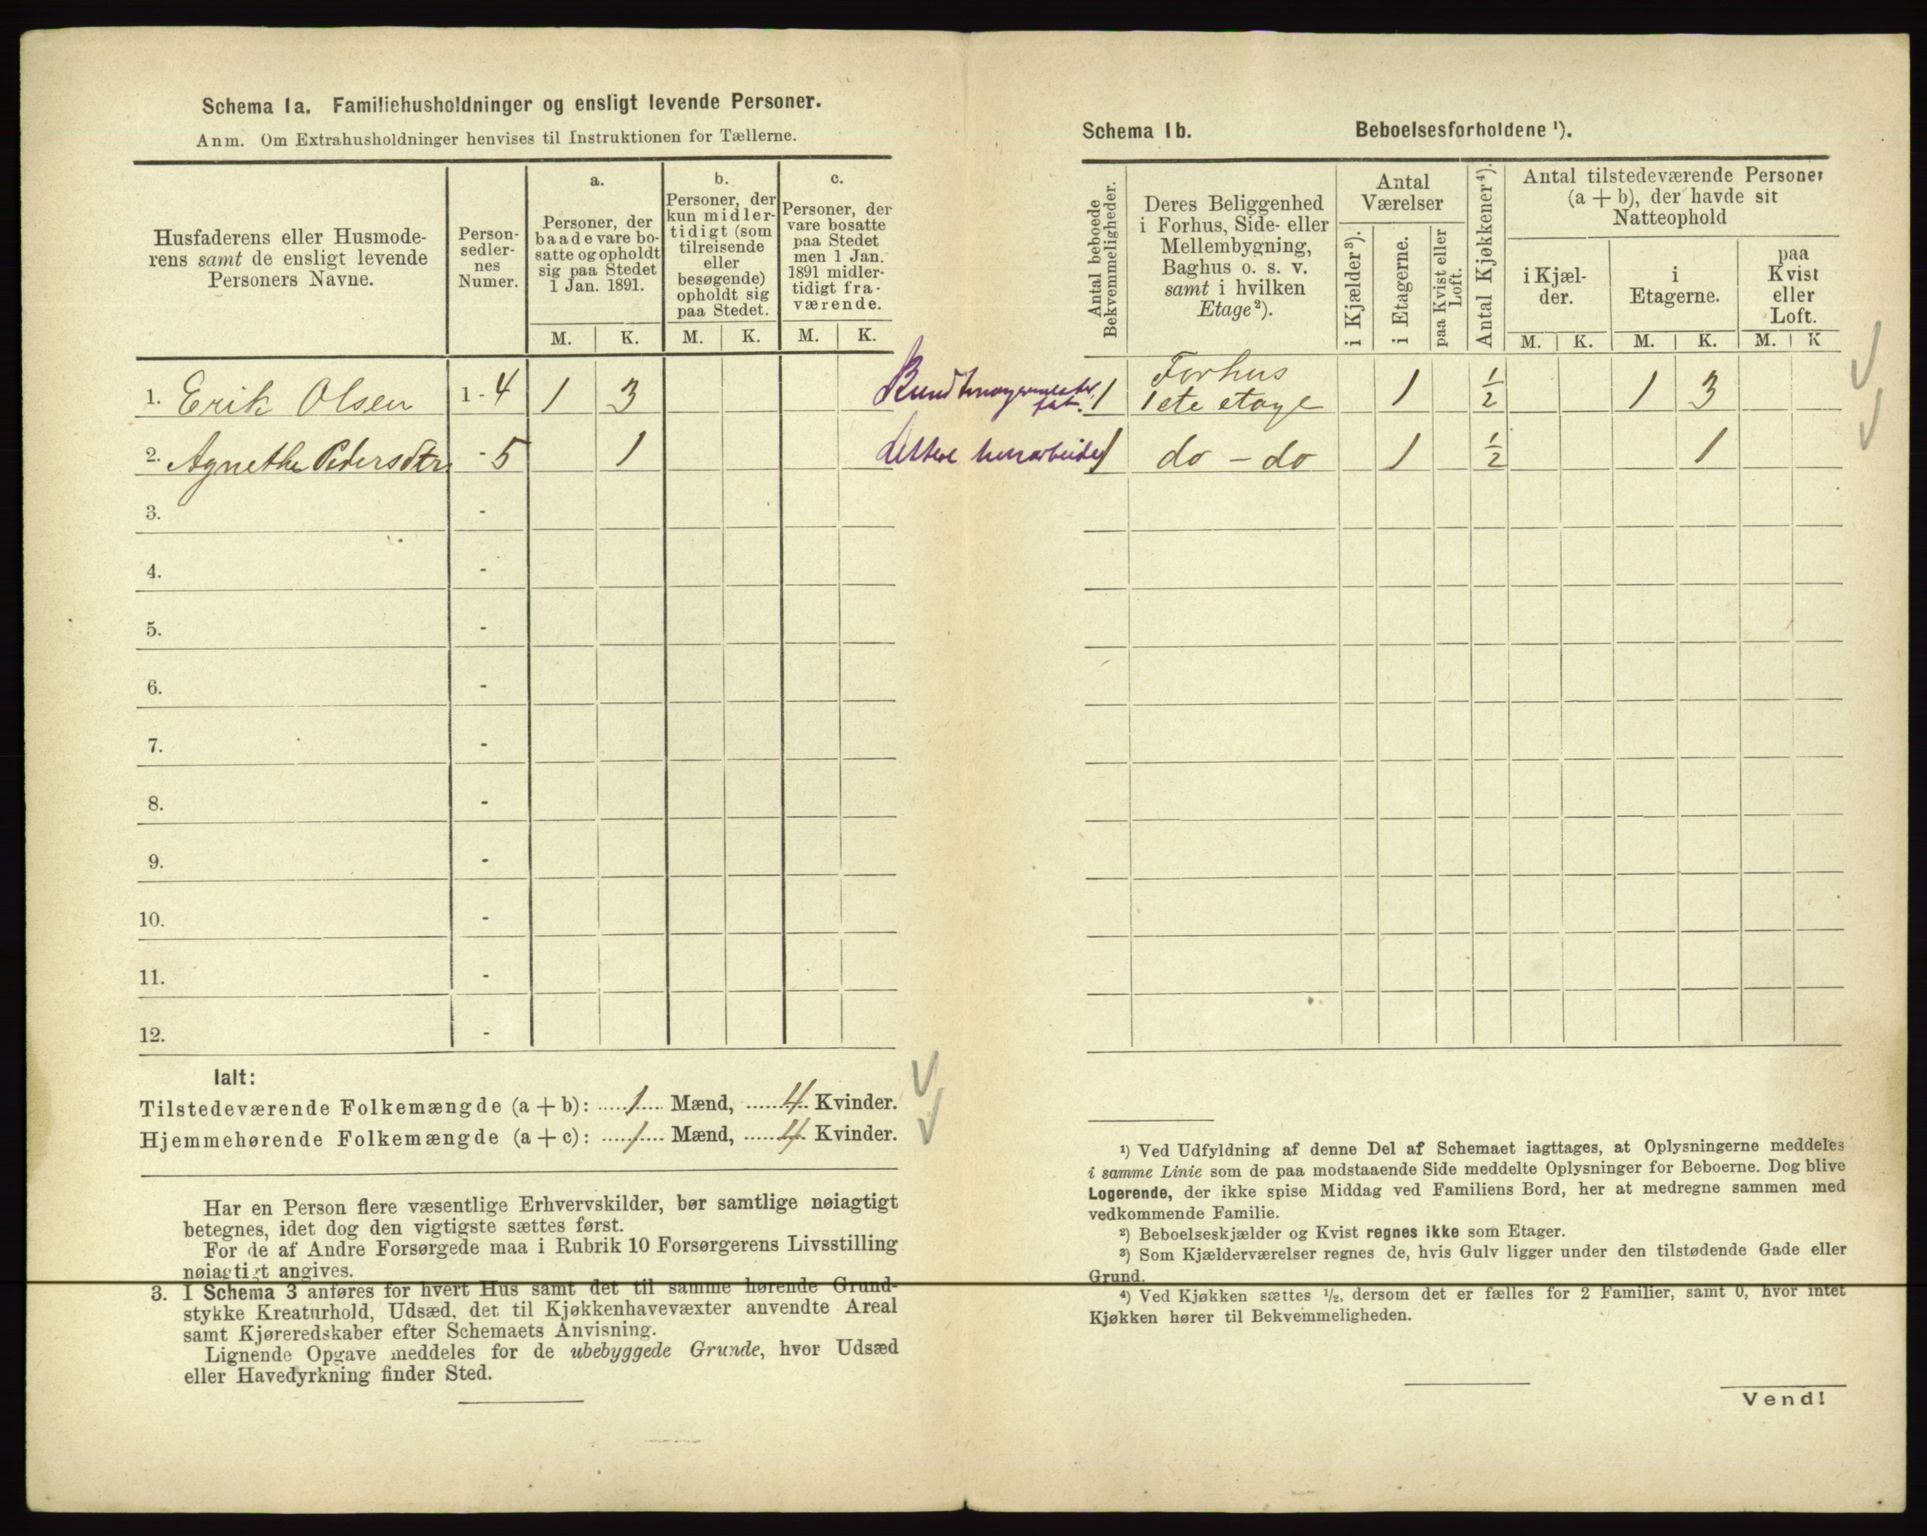 Schema 1a. Familiehusholdninger og ensligt levende Personer.
Anm. Om Extrahusholdninger henvises til Instruktionen for Tællerne.
Husfaderens eller Husmode-
rens samt de ensligt levende
Personers Navne.
Person-
sedler-
nes
Numer.
a.
Personer, der
baade vare bo-
satte og opholdt
sig paa Stedet
1 Jan. 1891.
b.
Personer, der
kun midler-
tidigt (som
tilreisende
eller
besøgende)
opholdt sig
paa Stedet.
c.
Personer, der
vare bosatte
paa Stedet
men 1 Jan.
1891 midler-
tidigt fra-
værende.
M. K. M. K. M. K.
1. Erik Olsen 1 - 4 1 3
2. Agnethe Pedersdtr - 5 1
3. -
4. -
5. -
6. -
7. -
8. -
9. -
10. -
11. -
12. -
Ialt:
Tilstedeværende Folkemængde (a + b): 1 Mænd, 4 Kvinder.
Hjemmehørende Folkemængde (a + c): 1 Mænd, 4 Kvinder.
Har en Person flere væsentlige Erhvervskilder, bør samtlige nøiagtigt
betegnes, idet dog den vigtigste sættes først.
For de af Andre Forsørgede maa i Rubrik 10 Forsørgerens Livsstilling
nøiagtigt angives.
3. I Schema 3 anføres for hvert Hus samt det til samme hørende Grund-
stykke Kreaturhold, Udsæd, det til Kjøkkenhavevæxter anvendte Areal
samt Kjøreredskaber efter Schemaets Anvisning.
Lignende Opgave meddeles for de ubebyggede Grunde, hvor Udsæd
eller Havedyrkning finder Sted.
Schema 1b. Beboelsesforholdene ¹).
Antal beboede
Bekvemmeligheder.
Deres Beliggenhed
i Forhus, Side- eller
Mellembygning,
Baghus o. s. v.
samt i hvilken
Etage²).
Antal
Værelser
i Kjælder³).
i Etagerne.
paa Kvist eller
Loft.
Antal Kjøkkener⁴).
Antal tilstedeværende Personer
(a + b), der havde sit
Natteophold
i Kjæl-
der.
i
Etagerne.
paa
Kvist
eller
Loft.
M. K. M. K. M. K
1 Forhus
1ete etage 1 ½ 1 3
1 do - do 1 ½ 1
¹) Ved Udfyldning af denne Del af Schemaet iagttages, at Oplysningerne meddeles
i samme Linie som de paa modstaaende Side meddelte Oplysninger for Beboerne. Dog blive
Logerende, der ikke spise Middag ved Familiens Bord, her at medregne sammen med
vedkommende Familie.
²) Beboelseskjælder og Kvist regnes ikke som Etager.
³) Som Kjælderværelser regnes de, hvis Gulv ligger under den tilstødende Gade eller
Grund.
⁴) Ved Kjøkken sættes ½, dersom det er fælles for 2 Familier, samt 0, hvor intet
Kjøkken hører til Bekvemmeligheden.
Vend!